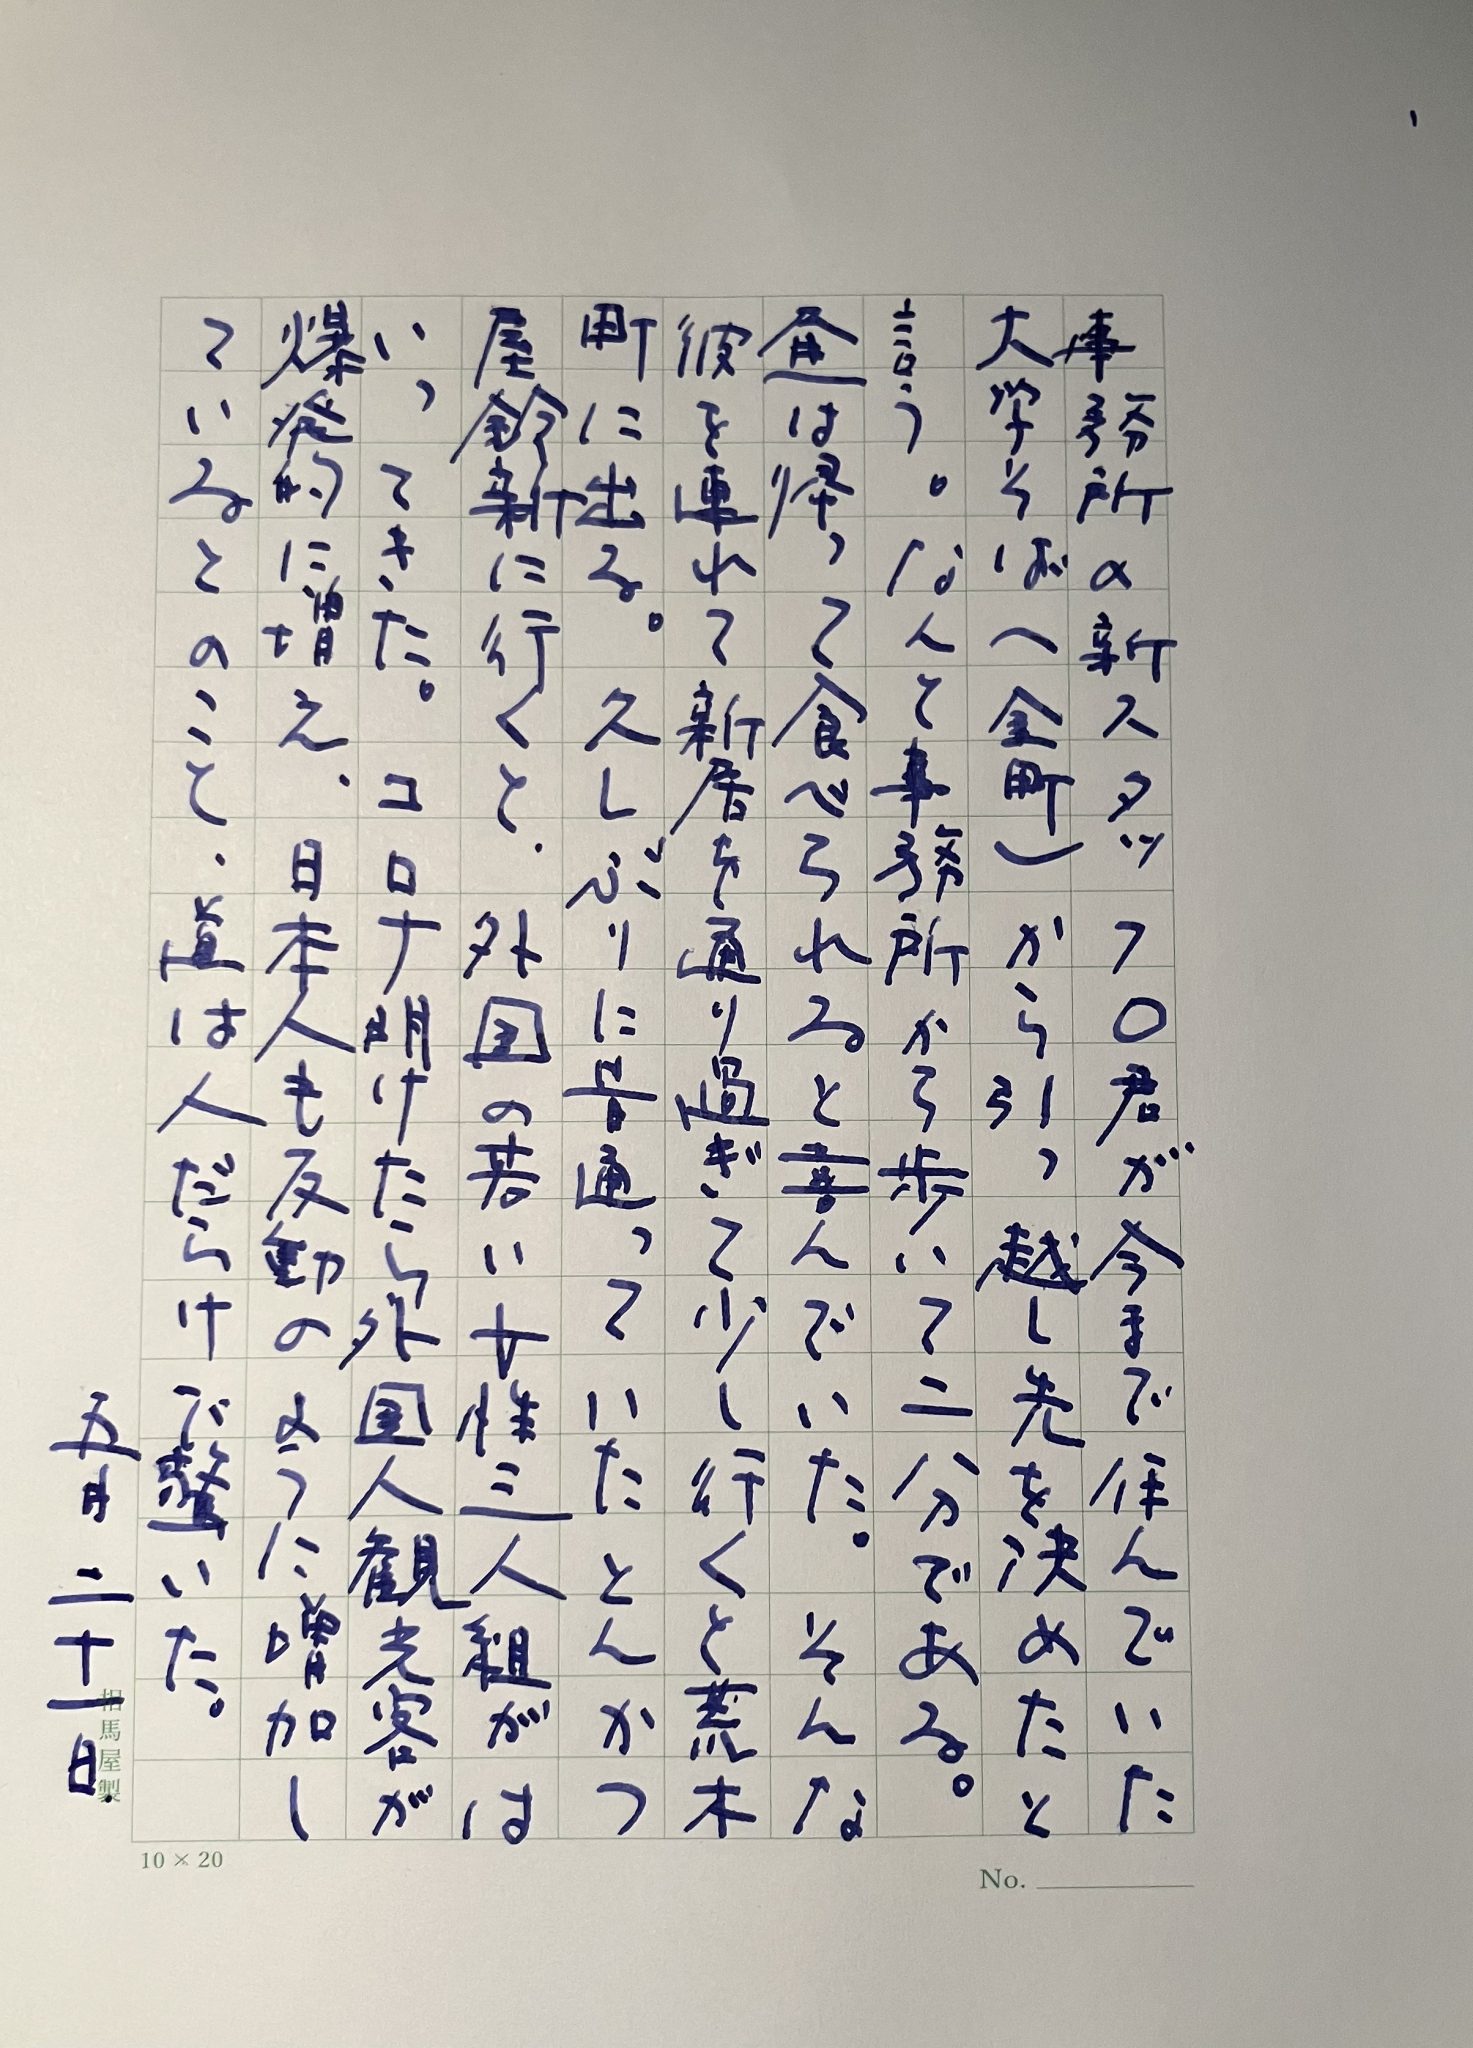 事務所の新スタッフO君が今まで住んでいた
大学そば(金町)から引っ越し先を決めたと
言う。なんと事務所から歩いて二分である。
昼は帰って食べられると喜んでいた。そんな
彼を連れて新居を通り過ぎて少し行くと荒木
町に出る。久しぶりに昔通っていたとんかつ
屋鈴新に行くと、外国の若い女性三人組がは
いってきた。コロナ明けたら外国人観光客が
爆発的に増え、日本人も反動のように増加し
ているとのこと、道は人だらけで驚いた。
五月二十一日
相馬屋製
10 × 20
No.